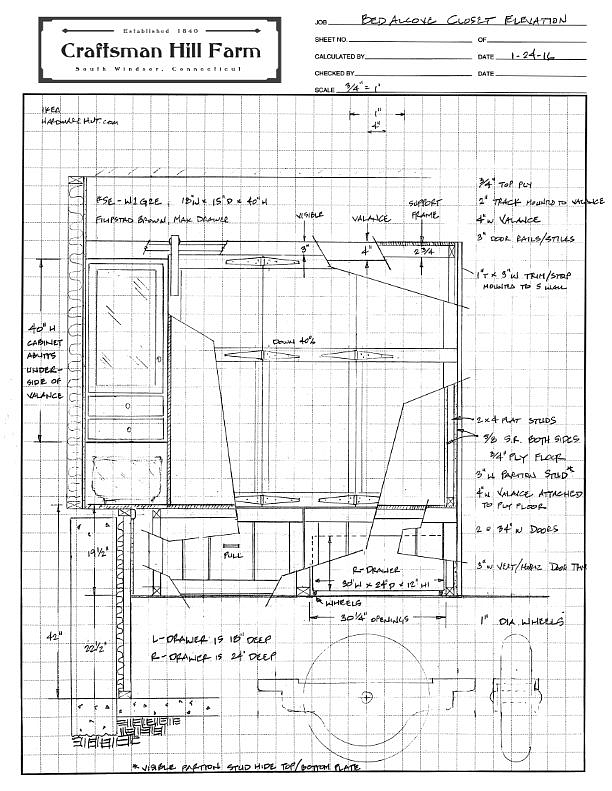 Established 1840
Craftsman Hill Farm
South Windsor, Connecticut
JOB BED ALCOVE CLOSET ELEVATION
SHEET NO. OF
CALCULATED BY DATE 1-24-16
CHECKED BY DATE
SCALE 3/4" = 1'
IKEA
HARDWARE HUT.COM
1"
4"
PSE-W1G2E, 18"W x 15"D x 40"H
FILIPSTAD BROWN, MAX DRAWER
VISIBLE
3"
VALANCE
4"
SUPPORT
FRAME
2 3/4
3/4" TOP PLY
2" TRACK MOUNTED TO VALANCE
4"W VALANCE
3" DOOR RAILS/STILES
1"T x 3"W TRIM/STOP
MOUNTED TO S WALL
40" H
CABINET
ABUTS
UNDER-
SIDE OF
VALANCE
DOWN 40%
2x4 FLAT STUDS
3/8 S.R. BOTH SIDES
3/4" PLY FLOOR
3"W PARTION STUD*
4"W VALANCE ATTACHED
TO PLY FLOOR
2 @ 34"W DOORS
3"W VERT/HORIZ DOOR TRIM
19 1/2"
PULL
R-DRAWER
30"W x 24"D x 12"HI
WHEELS
30 1/4" OPENINGS
1" DIA. WHEELS
42"
22 1/2"
L-DRAWER IS 18" DEEP
R-DRAWER IS 24" DEEP
* VISIBLE PARTION STUD HIDE TOP/BOTTOM PLATE